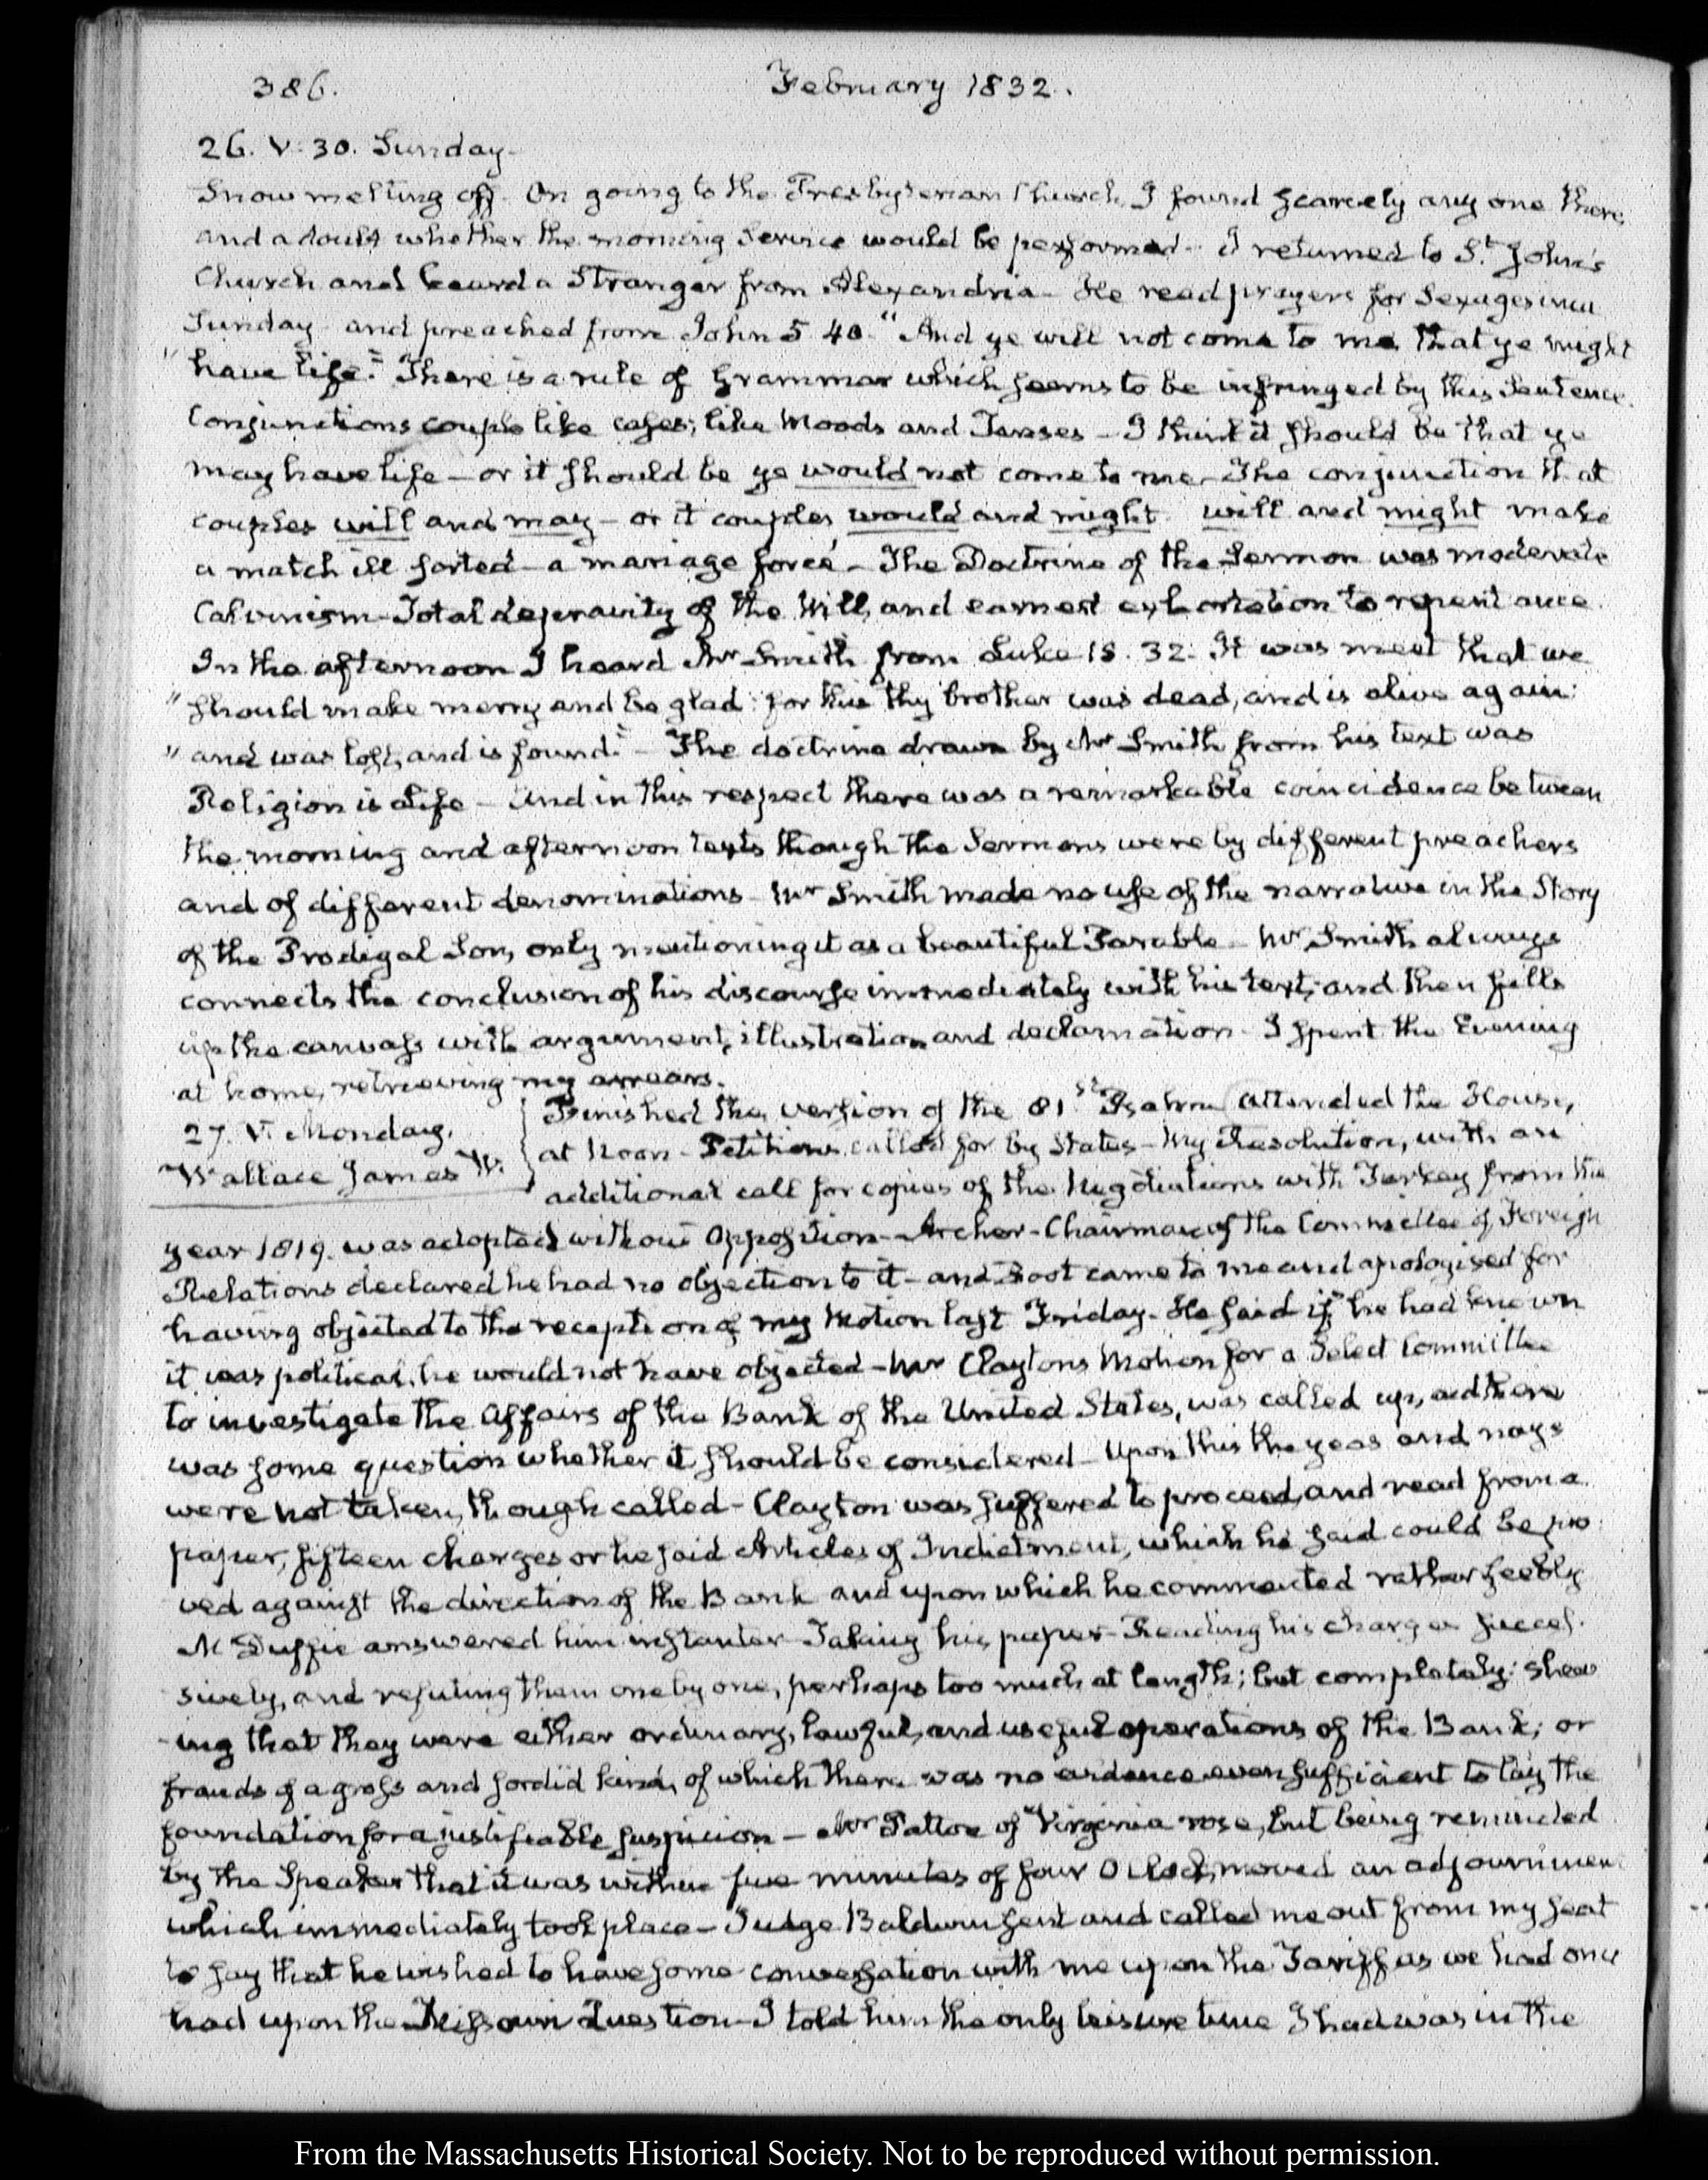 386.
February 1832.
26. V: 30. Sunday-
Snow melting off. On going to the Presbyterian Church, I found scarcely any one there,
and a doubt whether the morning Service would be performed- I returned to St. John's
Church and heard a Stranger from Alexandria- He read prayers for Sexagesima
Sunday- and preached from John 5 40. "And ye will not come to me that ye might
"have life." There is a rule of Grammar which seems to be infringed by this Sentence.
Conjunctions couple like cases; like Moods and Tenses- I think it should be that ye
may have life- or it should be ye would not come to me- The conjunction that
couples will and may- or it couples would and might. will and might make
a match ill sorted- a mariage forcé- The Doctrine of the Sermon was moderate
Calvinism- Total depravity of the Will, and earnest exhortation to repentance.
In the afternoon I heard Mr. Smith from Luke 15. 32. It was meet that we
"should make merry and be glad: for this thy brother was dead, and is alive again:
"and was lost, and is found."- The doctrine drawn by Mr Smith from his text was
Religion is Life- And in this respect there was a remarkable coincidence between
the morning and afternoon texts though the Sermons were by different preachers
and of different denominations- Mr Smith made no use of the narrative in the Story
of the Prodigal Son, only mentioning it as a beautiful Parable- Mr. Smith always
connects the conclusion of his discourse immediately with his text, and then fills
up the canvass with argument, illustration and declamation- I spent the Evening
at home, retrieving my arrears.
27. V. Monday.
Wallace James W.
Finished the version of the 81st. Psalm Attended the House,
at Noon- Petitions called for by States- My Resolution, with an
additional call for copies of the Negotiations with Turkey from the
year 1819. was adopted without Opposition- Archer- Chairman of the Committee of Foreign
Relations declared he had no objection to it- and Root came to me and apologised for
having objected to the reception of my Motion last Friday- He said if he had known
it was political, he would not have objected- Mr Claytons Motion for a Select Committee
to investigate the Affairs of the Bank of the United States, was called up, and there
was some question whether it should be considered- Upon this the yeas and nays
were not taken, though called- Clayton was suffered to proceed, and read from a
paper, fifteen charges or he said Articles of Indictment, which he said could be pro
ved against the direction of the Bank and upon which he commented rather feebly
McDuffie answered him instanter- Taking his paper- Reading his charges succes-
sively, and refuting them one by one, perhaps too much at length; but completely: shew
-ing that they were either ordinary, lawful, and useful operations of the Bank; or
frauds of a gross and sordid kind, of which there was no evidence even sufficient to lay the
foundation for a justifiable suspicion- Mr Patton of Virginia rose, but being reminded
by the Speaker that it was within five minutes of four O'Clock, moved an adjournment
which immediately took place- Judge Baldwin sent and called me out from my seat
to say that he wished to have some conversation with me upon the Tariff as we had once
had upon the Missouri Question- I told him the only leisure time I had was in the
From the Massachusetts Historical Society. Not to be reproduced without permission.